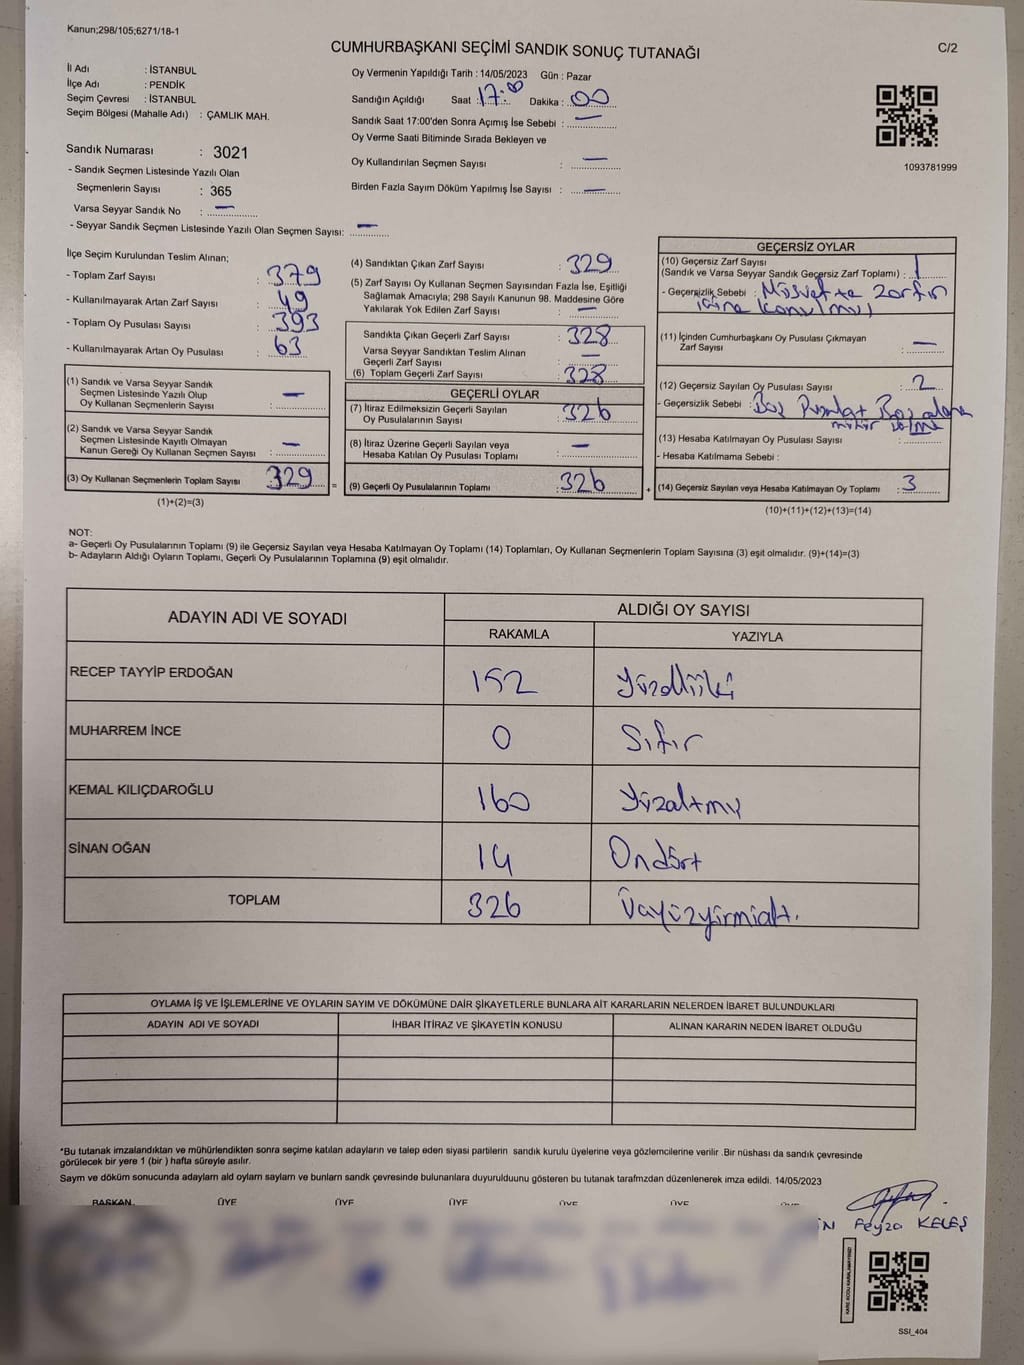 Kanun;298/105;6271/18-1
CUMHURBAŞKANI SEÇİMİ SANDIK SONUÇ TUTANAĞI
C/2
İl Adı : İSTANBUL
İlçe Adı : PENDİK
Seçim Çevresi : İSTANBUL
Seçim Bölgesi (Mahalle Adı) : ÇAMLIK MAH.
Sandık Numarası : 3021
- Sandık Seçmen Listesinde Yazılı Olan
Seçmenlerin Sayısı : 365
Varsa Seyyar Sandık No : —
- Seyyar Sandık Seçmen Listesinde Yazılı Olan Seçmen Sayısı: —
Oy Vermenin Yapıldığı Tarih : 14/05/2023 Gün : Pazar
Sandığın Açıldığı Saat : 17:00 Dakika : 00
Sandık Saat 17:00'den Sonra Açımış İse Sebebi : —
Oy Verme Saati Bitiminde Sırada Bekleyen ve
Oy Kullandırılan Seçmen Sayısı : —
Birden Fazla Sayım Döküm Yapılmış İse Sayısı : —
1093781999
İlçe Seçim Kurulundan Teslim Alınan;
- Toplam Zarf Sayısı : 379
- Kullanılmayarak Artan Zarf Sayısı : 49
- Toplam Oy Pusulası Sayısı : 393
- Kullanılmayarak Artan Oy Pusulası : 63
(1) Sandık ve Varsa Seyyar Sandık
Seçmen Listesinde Yazılı Olup
Oy Kullanan Seçmenlerin Sayısı : —
(2) Sandık ve Varsa Seyyar Sandık
Seçmen Listesinde Kayıtlı Olmayan
Kanun Gereği Oy Kullanan Seçmen Sayısı : —
(3) Oy Kullanan Seçmenlerin Toplam Sayısı : 329
(1)+(2)=(3)
=
(4) Sandıktan Çıkan Zarf Sayısı : 329
(5) Zarf Sayısı Oy Kullanan Seçmen Sayısından Fazla İse, Eşitliği
Sağlamak Amacıyla; 298 Sayılı Kanunun 98. Maddesine Göre
Yakılarak Yok Edilen Zarf Sayısı : —
Sandıkta Çıkan Geçerli Zarf Sayısı : 328
Varsa Seyyar Sandıktan Teslim Alınan
Geçerli Zarf Sayısı : —
(6) Toplam Geçerli Zarf Sayısı : 328
GEÇERLİ OYLAR
(7) İtiraz Edilmeksizin Geçerli Sayılan
Oy Pusulalarının Sayısı : 326
(8) İtiraz Üzerine Geçerli Sayılan veya
Hesaba Katılan Oy Pusulası Toplamı : —
(9) Geçerli Oy Pusulalarının Toplamı : 326
+
GEÇERSİZ OYLAR
(10) Geçersiz Zarf Sayısı
(Sandık ve Varsa Seyyar Sandık Geçersiz Zarf Toplamı) : 1
- Geçersizlik Sebebi : zarfın
içine konulmuş
(11) İçinden Cumhurbaşkanı Oy Pusulası Çıkmayan
Zarf Sayısı : —
(12) Geçersiz Sayılan Oy Pusulası Sayısı : 2
- Geçersizlik Sebebi : Boş
mühür
(13) Hesaba Katılmayan Oy Pusulası Sayısı :
- Hesaba Katılmama Sebebi :
(14) Geçersiz Sayılan veya Hesaba Katılmayan Oy Toplamı : 3
(10)+(11)+(12)+(13)=(14)
NOT:
a- Geçerli Oy Pusulalarının Toplamı (9) ile Geçersiz Sayılan veya Hesaba Katılmayan Oy Toplamı (14) Toplamları, Oy Kullanan Seçmenlerin Toplam Sayısına (3) eşit olmalıdır. (9)+(14)=(3)
b- Adayların Aldığı Oyların Toplamı, Geçerli Oy Pusulalarının Toplamına (9) eşit olmalıdır.
ADAYIN ADI VE SOYADI
ALDIĞI OY SAYISI
RAKAMLA YAZIYLA
RECEP TAYYİP ERDOĞAN 152 Yüzelliiki
MUHARREM İNCE 0 Sıfır
KEMAL KILIÇDAROĞLU 160 Yüzaltmış
SİNAN OĞAN 14 Ondört
TOPLAM 326 Üçyüzyirmialtı.
OYLAMA İŞ VE İŞLEMLERİNE VE OYLARIN SAYIM VE DÖKÜMÜNE DAİR ŞİKAYETLERLE BUNLARA AİT KARARLARIN NELERDEN İBARET BULUNDUKLARI
ADAYIN ADI VE SOYADI İHBAR İTİRAZ VE ŞİKAYETİN KONUSU ALINAN KARARIN NEDEN İBARET OLDUĞU
*Bu tutanak imzalandıktan ve mühürlendikten sonra seçime katılan adayların ve talep eden siyasi partilerin sandık kurulu üyelerine veya gözlemcilerine verilir .Bir nüshası da sandık çevresinde
görülecek bir yere 1 (bir ) hafta süreyle asılır.
Sayım ve döküm sonucunda adayların aldı oyların sayların ve bunların sandk çevresinde bulunanlara duyurulduunu gösteren bu tutanak tarafmzdan düzenlenerek imza edildi. 14/05/2023
BAŞKAN ÜYE ÜYE ÜYE ÜYE ÜYE ÜYE
Feyza KELEŞ
SSI_404